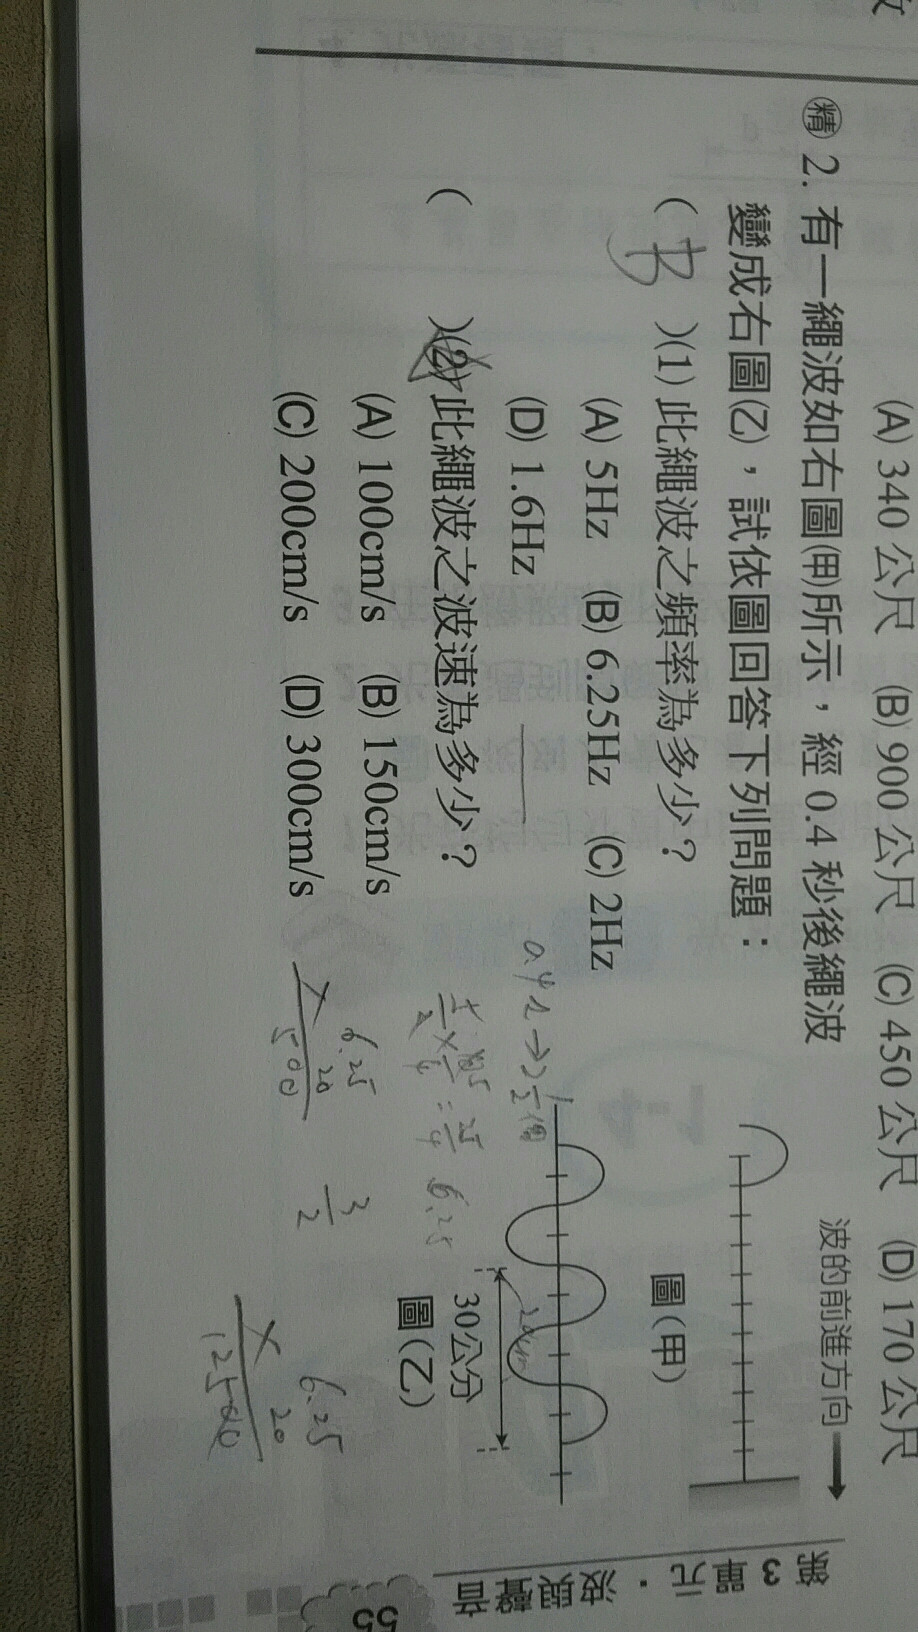 (A) 340 公尺 (B) 900 公尺 (C) 450 公尺 (D) 170 公尺
精 2. 有一繩波如右圖(甲)所示，經 0.4 秒後繩波
變成右圖(乙)，試依圖回答下列問題：
( B )(1) 此繩波之頻率為多少？
(A) 5Hz (B) 6.25Hz (C) 2Hz
(D) 1.6Hz
( )(2) 此繩波之波速為多少？
(A) 100cm/s (B) 150cm/s
(C) 200cm/s (D) 300cm/s
波的前進方向
圖(甲)
20cm
30公分
圖(乙)
6.25
6.25
× 20
500
3/2
6.25
× 20
12500
第 3 單元・波與聲音
55